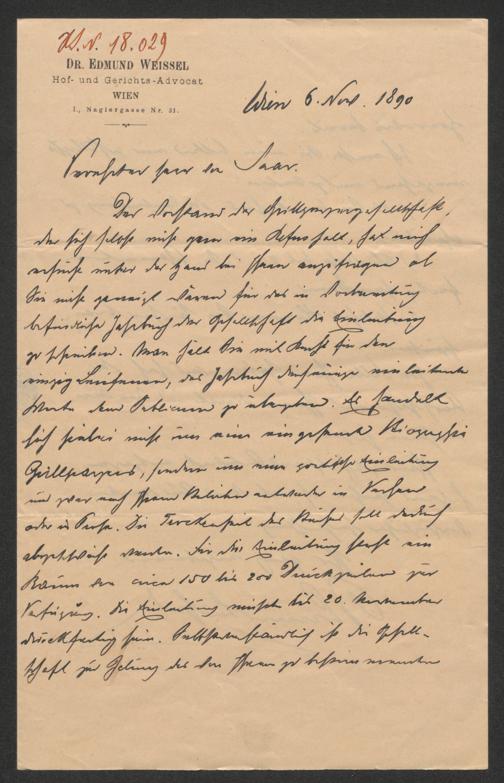 H.I.N. 18.029
DR. EDMUND WEISSEL
Hof- und Gerichts-Advocat
WIEN
I., Naglergasse Nr. 31.
Wien 6. Nov. 1890
Verehrter Herr von Saar.
Der Vorstand der Grillparzergesellschaft,
der sich selbst nicht gern ein Refus holt, hat mich
ersucht unter der Hand bei Ihnen anzufragen ob
Sie nicht geneigt wären für das in Vorbereitung
befindliche Jahrbuch der Gesellschaft die Einleitung
zu schreiben. Man hält Sie mit Recht für den
einzig Berufenen, das Jahrbuch durch einige einleitende
Worte dem Publicum zu übergeben. Es handelt
sich hiebei nicht um eine eingehende Biographie
Grillparzers, sondern um eine poetische Einleitung
und zwar nach Ihrem Belieben entweder in Versen
oder in Prosa. Die Trockenheit des Buches soll dadurch
abgeschwächt werden. Für die Einleitung steht ein
Raum von circa 150 bis 200 Druckzeilen zur
Verfügung. Die Einleitung müsste bis 20. November
druckfertig sein. Selbstverständlich ist die Gesell-
schaft zur Zahlung des von Ihnen zu bestimmenden